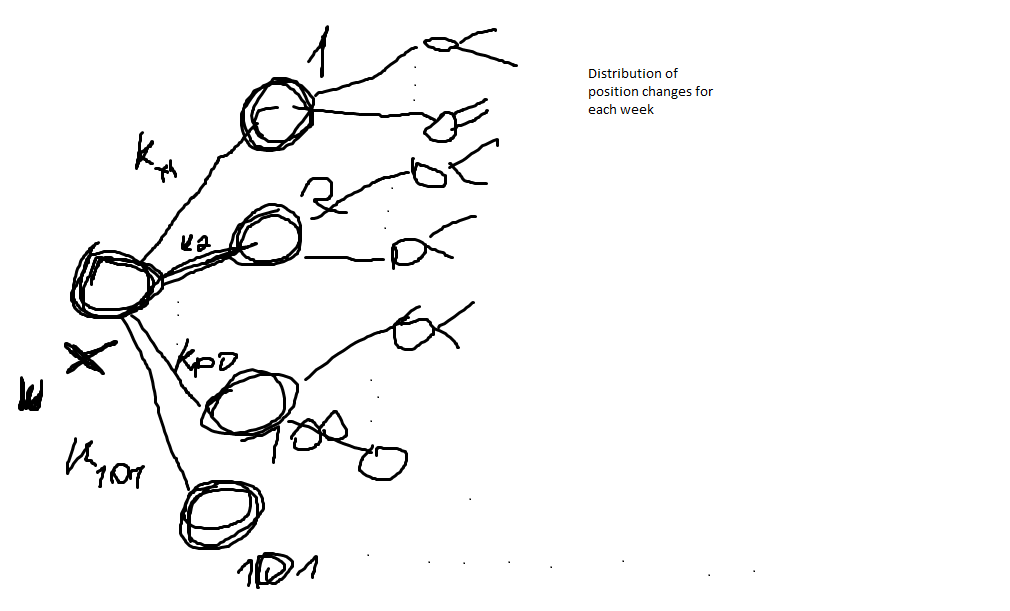 1
Distribution of
position changes for
each week
2
K2
X
100
K101
101